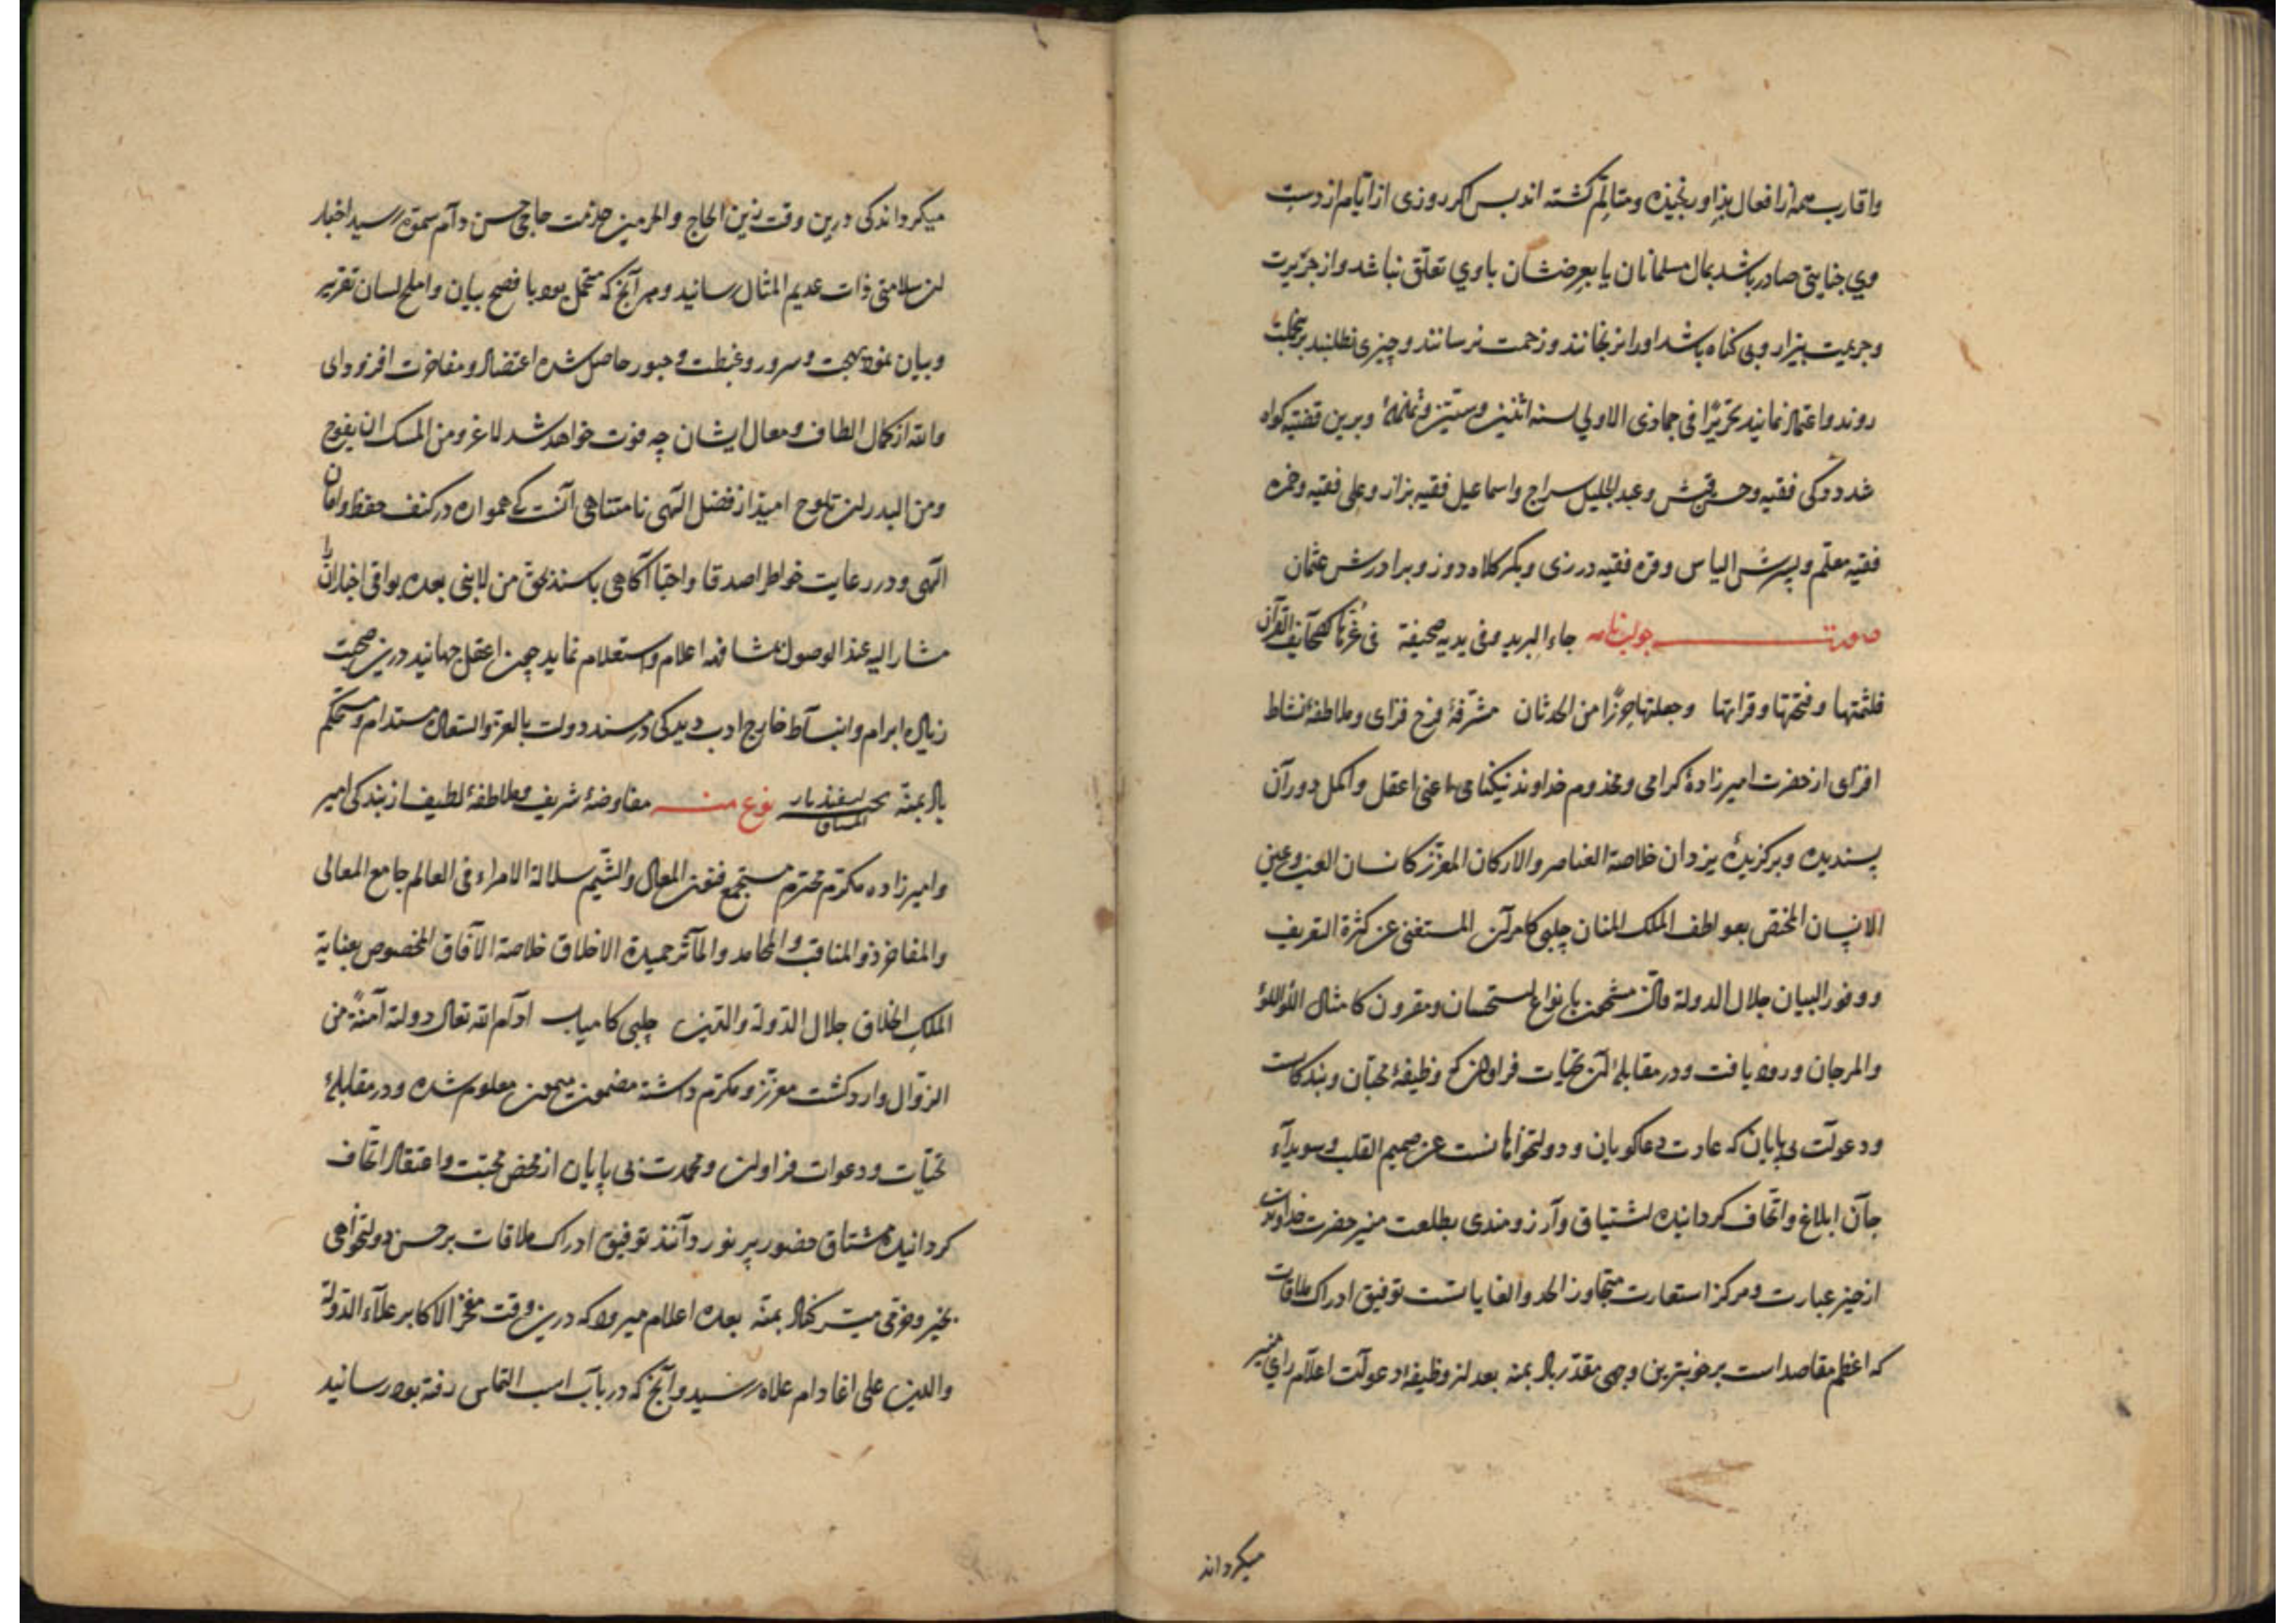 واقارب همه از افعال بد او رنجیده و متالم کشته اند بس اکر روزی از ایام از دست
وی جنایتی صادر باشد بمال مسلمانان یا بعرضشان باوی تعلق نباشد و از جزیرت
و جریمت بیزار و بی کناه باشد اورا نرنجانند و زحمت نرسانند و چیزی نطلبند برین حجت
روند و اعتماد نمانید تحریرًا فی جمادی الاولی سنه اثنین وستین وثمانمائة وبرین قضیه کواه
شد دوکی فقیه وحسن و عبد الجلیل سراج واسماعیل فقیه بزاز وعلی فقیه وحمزه
فقیه معلم وپسرش الیاس وقره فقیه درزی وبکر کلاه دوز وبرادرش عثمان
صورت جواب نامه جاء البرید وفی یدیه صحیفة فی غرتها کصحایف القرآن
فلثمتها وفتحتها وقراتها وجعلتها حرزًا من الحدثان مشرفۀ فرح فزای وملاطفۀ نشاط
افزای از حضرت امیرزادۀ کرامی ومخدوم خداوند نیکنامی اعنی اعقل واکمل دوران
پسندیده وبرکزیدۀ یزدان خلاصة العناصر والارکان المعزز کانسان العین وعین
الانسان المختص بعواطف الملک المنان چلبی کامران المستغنی عن کثرة التعریف
ووفور البیان جلال الدولة والدین مشحون بانواع استحسان ومقرون کامثال اللؤلؤ
والمرجان ورود یافت ودر مقابلۀ آن تحیات فراوان که وظیفۀ محبان وبندکانست
ودعوات بی پایان که عادت دعاکویان ودولتخواهانست عن صمیم القلب وسویداء
جان ابلاغ واتحاف کردانیده اشتیاق وآرزومندی بطلعت منیر حضرت خداوند
از حیز عبارت ومرکز استعارت متجاوز الحد والغایاتست توفیق ادراک ملاقات
که اعظم مقاصد است بر خوبترین وجهی مقدر باد بمنه بعد از وظیفۀ دعوات اعلام رای منیر
میکرداند
میکرداند کی درین وقت زین الحاج والحرمین حاجی حسن دام سموه رسید اخبار
از سلامتی ذات عدیم المثال رسانید وهر آنچ که متحمل بود با فصح بیان واملح لسان تقریر
وبیان نمود بهجت وسرور وغبطت وحبور حاصل شده اعتضاد ومفاخرت افزود ای
والله از کمال الطاف ومعالی ایشان چه فوت خواهد شد لاغرو من المسک ان یفوح
ومن البدر ان یلوح امید از فضل الهی نامتناهی آنست که همواره در کنف حفظ وامان
الهی ودر رعایت خواطر اصدقا واحبا آکاهی باشند بحق من لا نبی بعده بواقی اخبار از
مشار الیه عند الوصول مشافهه اعلام واستعلام نماید چون اعقل جهانید درین صحبت
زیاده ابرام وانبساط خارج ادب دید کی در مسند دولت بالعز والسعادة مستدام ومستحکم
باد بمنه اسفندیار نوع منه مفاوضۀ شریف وملاطفۀ لطیف از بندکی امیر
وامیرزاده مکرم محترم مستجمع فنون المعالی والشیم سلالة الامراء فی العالم جامع المعالی
والمفاخر ذو المناقب والمحامد والمآثر حمیدة الاخلاق خلاصة الآفاق المخصوص بعنایة
الملک الخلاق جلال الدولة والدین چلبی کامیاب ادام الله تعالی دولته آمنة من
الزوال وارد کشت معزز ومکرم داشته مضمون میمون معلوم شده ودر مقابلۀ
تحیات ودعوات فراوان ومحمدت بی پایان از محض محبت واعتقاد اتحاف
کردانیده مشتاق حضور پر نور دانند توفیق ادراک ملاقات بر حسن دولتخواهی
بخیر وخرمی میسر کناد بمنه بعده اعلام میرود که درین وقت مفخر الاکابر علاء الدولة
والدین علی اغا دام علاه رسید وآنچ که در باب اسب التماس رفته بود رسانید